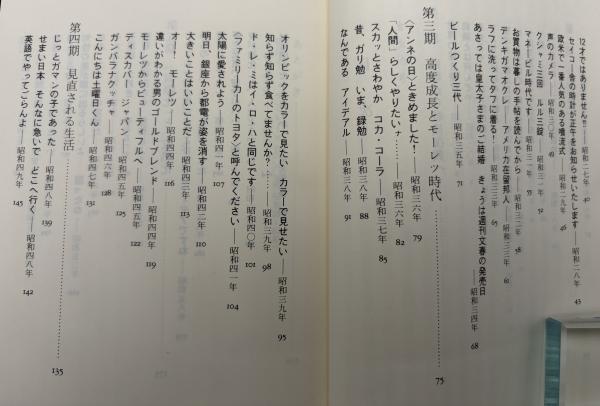 12才ではありません!!――昭和二七年 40
セイコー舎の時計が正午をお知らせいたします――昭和二八年 43
欧米で一番人気のある噴流式――昭和二八年 46
声のカメラ――昭和三〇年 49
クシャミ三回 ルル三錠――昭和三一年 52
マネービル時代です――昭和三一年 55
お買物は暮しの手帖を読んでから――昭和三二年 58
デンキガマオクレ――アメリカ在留邦人――昭和三三年 61
ラフに洗ってタフに着る!――昭和三三年 65
あさっては皇太子さまのご結婚 きょうは週刊文春の発売日――昭和三四年 68
ビールつくり三代――昭和三五年 71
第三期 高度成長とモーレツ時代 75
〈アンネの日〉ときめました!――昭和三六年 79
「人間」らしくやりたいナ――昭和三六年 82
スカッとさわやか コカ・コーラ――昭和三七年 85
昔、ガリ勉 いま、録勉――昭和三八年 88
なんである アイデアル――昭和三八年 91
オリンピックをカラーで見たい カラーで見せたい――昭和三九年 95
知らず知らず食べてませんか?……――昭和三九年 98
ド・レ・ミはイ・ロ・ハと同じです――昭和四〇年 101
〈ファミリーカーのトヨタ〉と呼んでください――昭和四一年 104
太陽に愛されよう――昭和四一年 107
明日、銀座から都電が姿を消す――昭和四二年 110
大きいことはいいことだ――昭和四三年 113
オー! モーレツ――昭和四四年 116
違いがわかる男のゴールドブレンド――昭和四四年 119
モーレツからビューティフルへ――昭和四五年 122
ディスカバー ジャパン――昭和四五年 125
ガンバラナクッチャ――昭和四六年 128
こんにちは土曜日くん――昭和四七年 131
第四期 見直される生活 135
じっとガマンの子であった――昭和四八年 139
せまい日本 そんなに急いで どこへ行く――昭和四八年 142
英語でやってごらんよ――昭和四九年 145